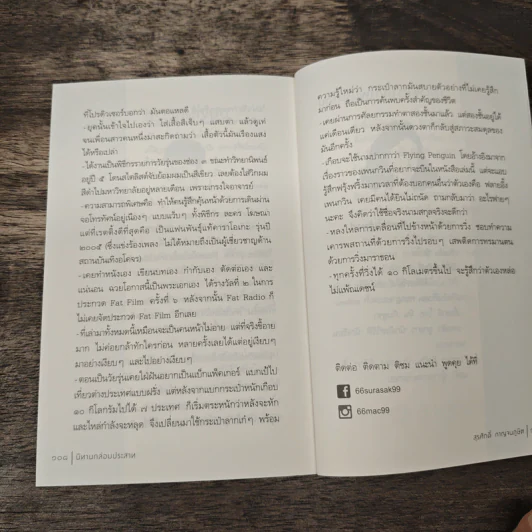 ที่โปรดิวเซอร์บอกว่า มันตอแหลดี
-ยุคนั้นเข้าใจไปเองว่า ใส่เสื้อสีเจ็บๆ แสบตา แล้วดูเท่
จนเพื่อนสาวคนหนึ่งมาสะกิดถามว่า เสื้อตัวนี้มันเรืองแสง
ได้หรือเปล่า
-ได้งานเป็นพิธีกรรายการวัยรุ่นของช่อง ๓ ขณะทำวิทยานิพนธ์
อยู่ปี ๕ โดนสไตลิสต์จับย้อมผมเป็นสีเขียว เลยต้องใส่วิกผม
สีดำไปมหาวิทยาลัยอยู่หลายเดือน เพราะเกรงใจอาจารย์
-ความสามารถพิเศษคือ ทำให้คนรู้สึกคุ้นหน้าด้วยการเดินผ่าน
จอโทรทัศน์อยู่เนืองๆ แบบแว้บๆ ทั้งพิธีกร ละคร โฆษณา
แต่ที่เรตติ้งดีที่สุดคือ เป็นแฟนพันธุ์แท้คาราโอเกะ รุ่นปี
๒๐๐๕ (ซึ่งแข่งร้องเพลง ไม่ได้หมายถึงเป็นผู้เชี่ยวชาญด้าน
สถานบันเทิงอโคจร)
-เคยทำหนังเอง เขียนบทเอง กำกับเอง ตัดต่อเอง และ
แน่นอน ฉวยโอกาสนี้เป็นพระเอกเอง ได้รางวัลที่ ๒ ในการ
ประกวด Fat Film ครั้งที่ ๖ หลังจากนั้น Fat Radio ก็
ไม่เคยจัดประกวด Fat Film อีกเลย
-ที่เล่ามาทั้งหมดนี้เหมือนจะเป็นคนหน้าไม่อาย แต่ที่จริงขี้อาย
มาก ไม่ค่อยกล้าทักใครก่อน หลายครั้งเลยได้แต่อยู่เงียบๆ
มาอย่างเงียบๆ และไปอย่างเงียบๆ
-ตอนเป็นวัยรุ่นเคยใฝ่ฝันอยากเป็นแบ็กแพ็คเกอร์ แบกเป้ไป
เที่ยวต่างประเทศแบบฝรั่ง แต่หลังจากแบกกระเป๋าหนักเกือบ
๑๐ กิโลกรัมไปได้ ๗ ประเทศ ก็เริ่มตระหนักว่าหลังจะหัก
และไหล่กำลังจะหลุด จึงเปลี่ยนมาใช้กระเป๋าลากเก๋ๆ พร้อม
๑๐๘ | นิทานกล่อมประสาท
ความรู้ใหม่ว่า กระเป๋าลากมันสบายตัวอย่างที่ไม่เคยรู้สึก
มาก่อน ถือเป็นการค้นพบครั้งสำคัญของชีวิต
-เคยผ่านการศัลยกรรมทำตาสองชั้นมาแล้ว แต่สองชั้นอยู่ได้
แค่เดือนเดียว หลังจากนั้นดวงตาก็กลับสู่สภาวะสมดุลของ
มันอีกครั้ง
-เกือบจะใช้นามปากกาว่า Flying Penguin โดยอ้างอิงมาจาก
เรื่องราวของเพนกวินที่อยากจะบินในหนังสือเล่มนี้ แต่จะแอบ
รู้สึกฟรุ้งฟริ้งมากเวลาที่ต้องบอกคนอื่นว่าตัวเองคือ ฟลายอิ้ง
เพนกวิน เคยมีคนได้ยินไม่ถนัด ถามกลับมาว่า อะไรฟลายๆ
นะคะ จึงคิดว่าใช้ชื่อจริงนามสกุลจริงจะดีกว่า
-หลงใหลการเคลื่อนที่ไปข้างหน้าด้วยการวิ่ง ชอบทำความ
เคารพสถานที่ด้วยการวิ่งไปรอบๆ เสพติดการทรมานตน
ด้วยการวิ่งมาราธอน
-ทุกครั้งที่วิ่งได้ ๑๐ กิโลเมตรขึ้นไป จะรู้สึกว่าตัวเองหล่อ
ไม่แพ้ณเดชน์
ติดต่อ ติดตาม ติชม แนะนำ พูดคุย ได้ที่
66surasak99
66mac99
สุรศักดิ์ กาญจนภูษิต